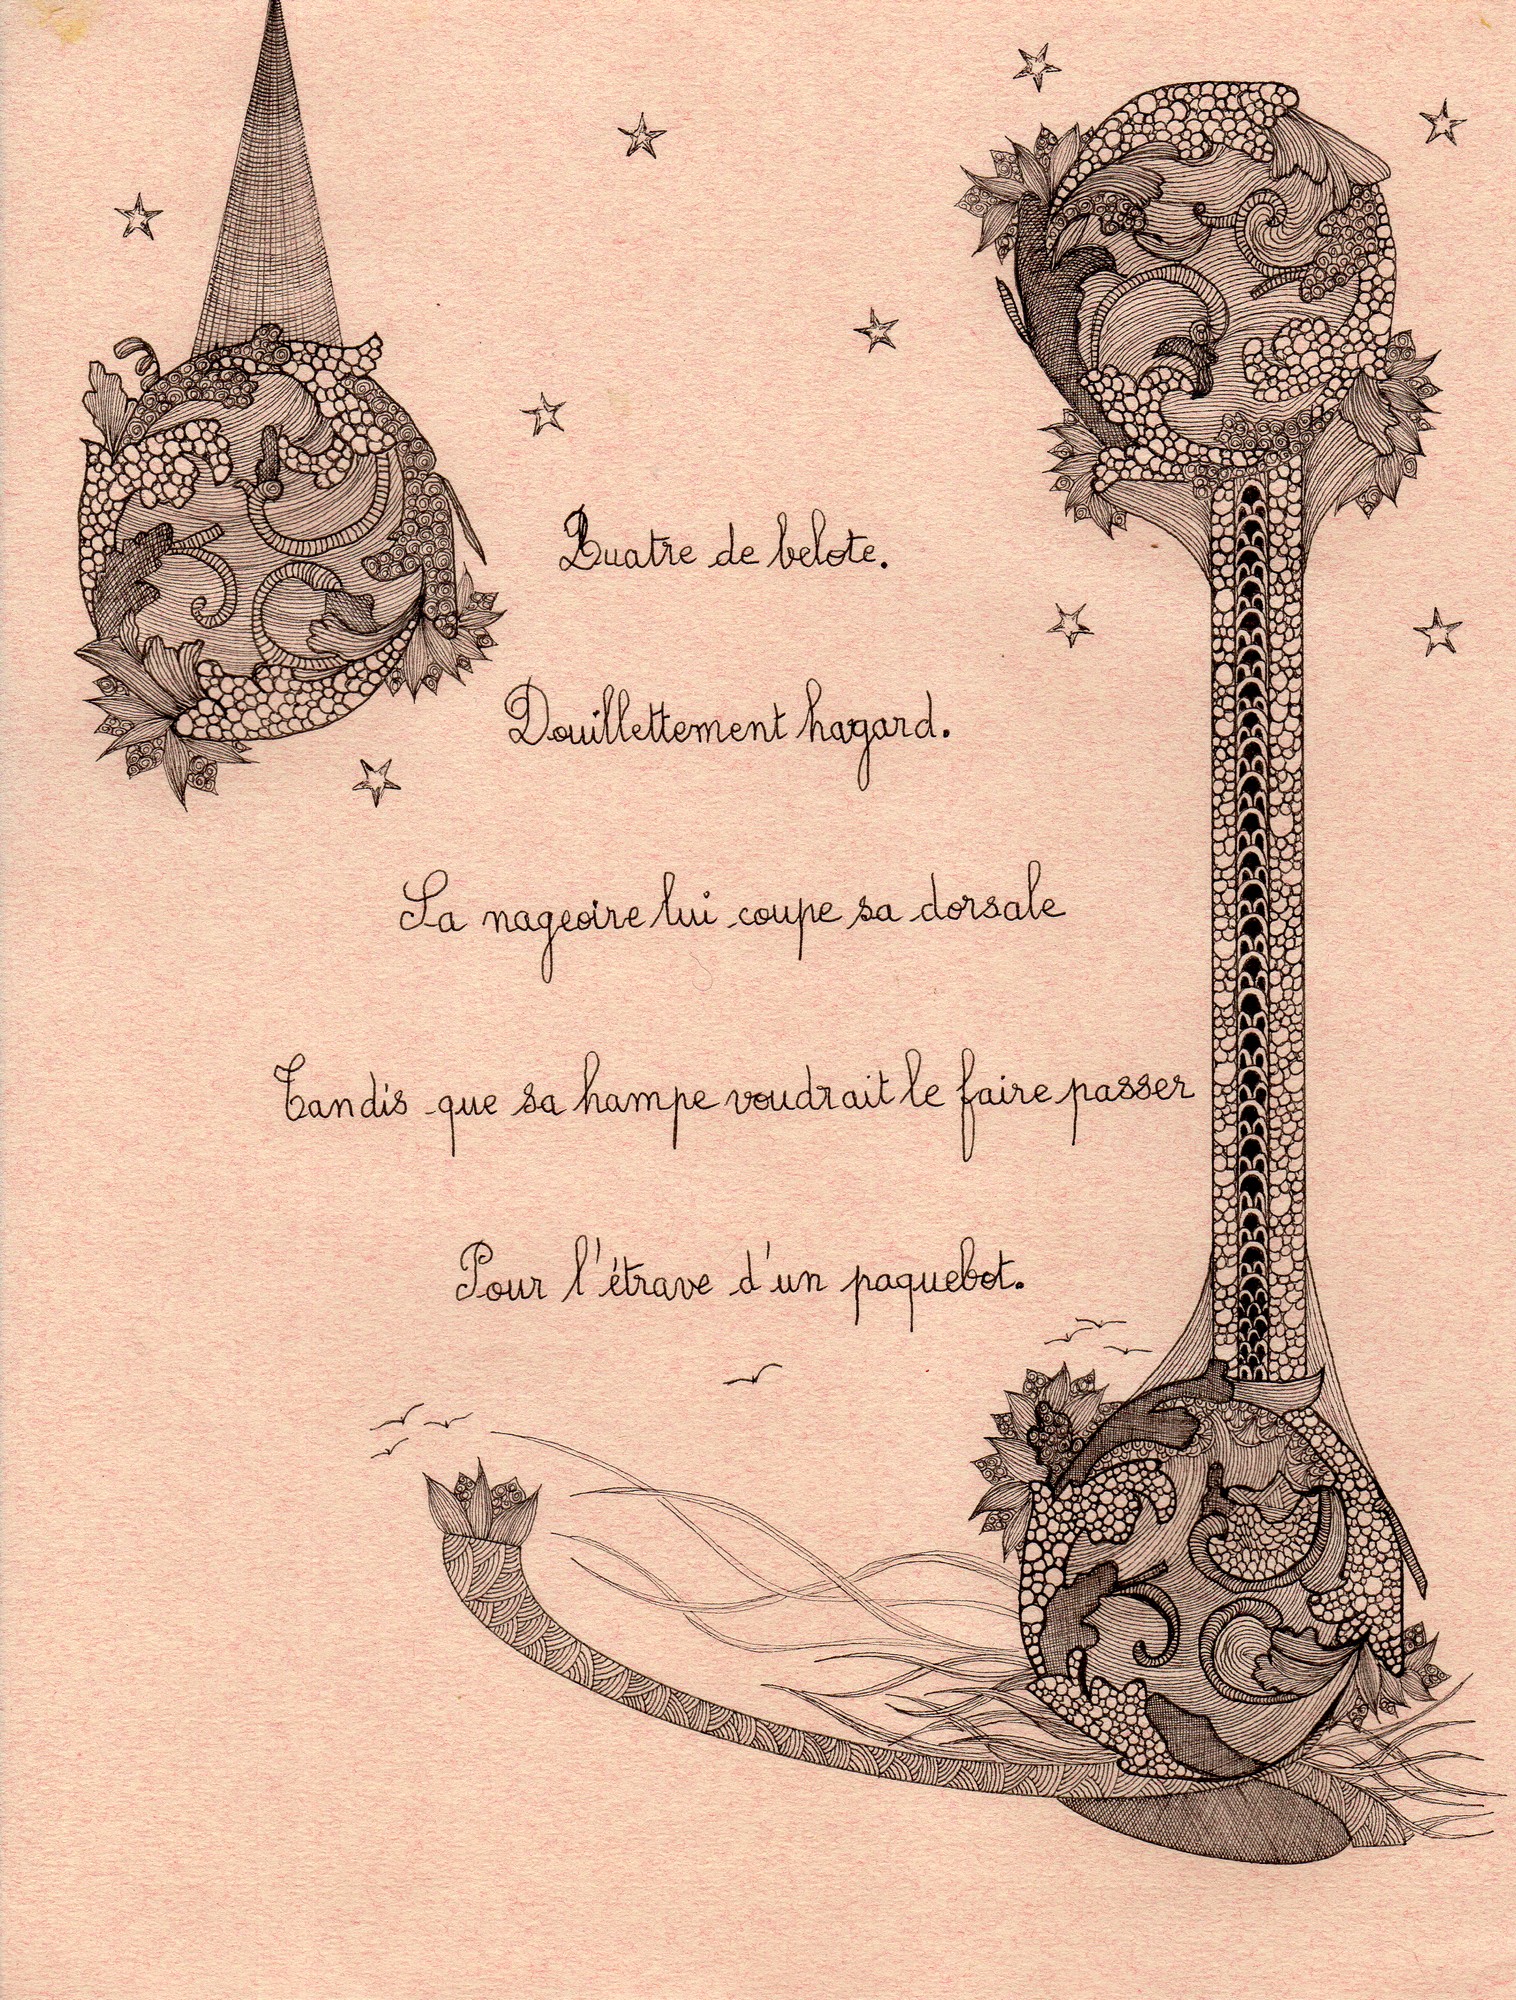 Quatre de belote.
Douillettement hagard.
Sa nageoire lui coupe sa dorsale
Tandis que sa hampe voudrait le faire passer
Pour l'étrave d'un paquebot.